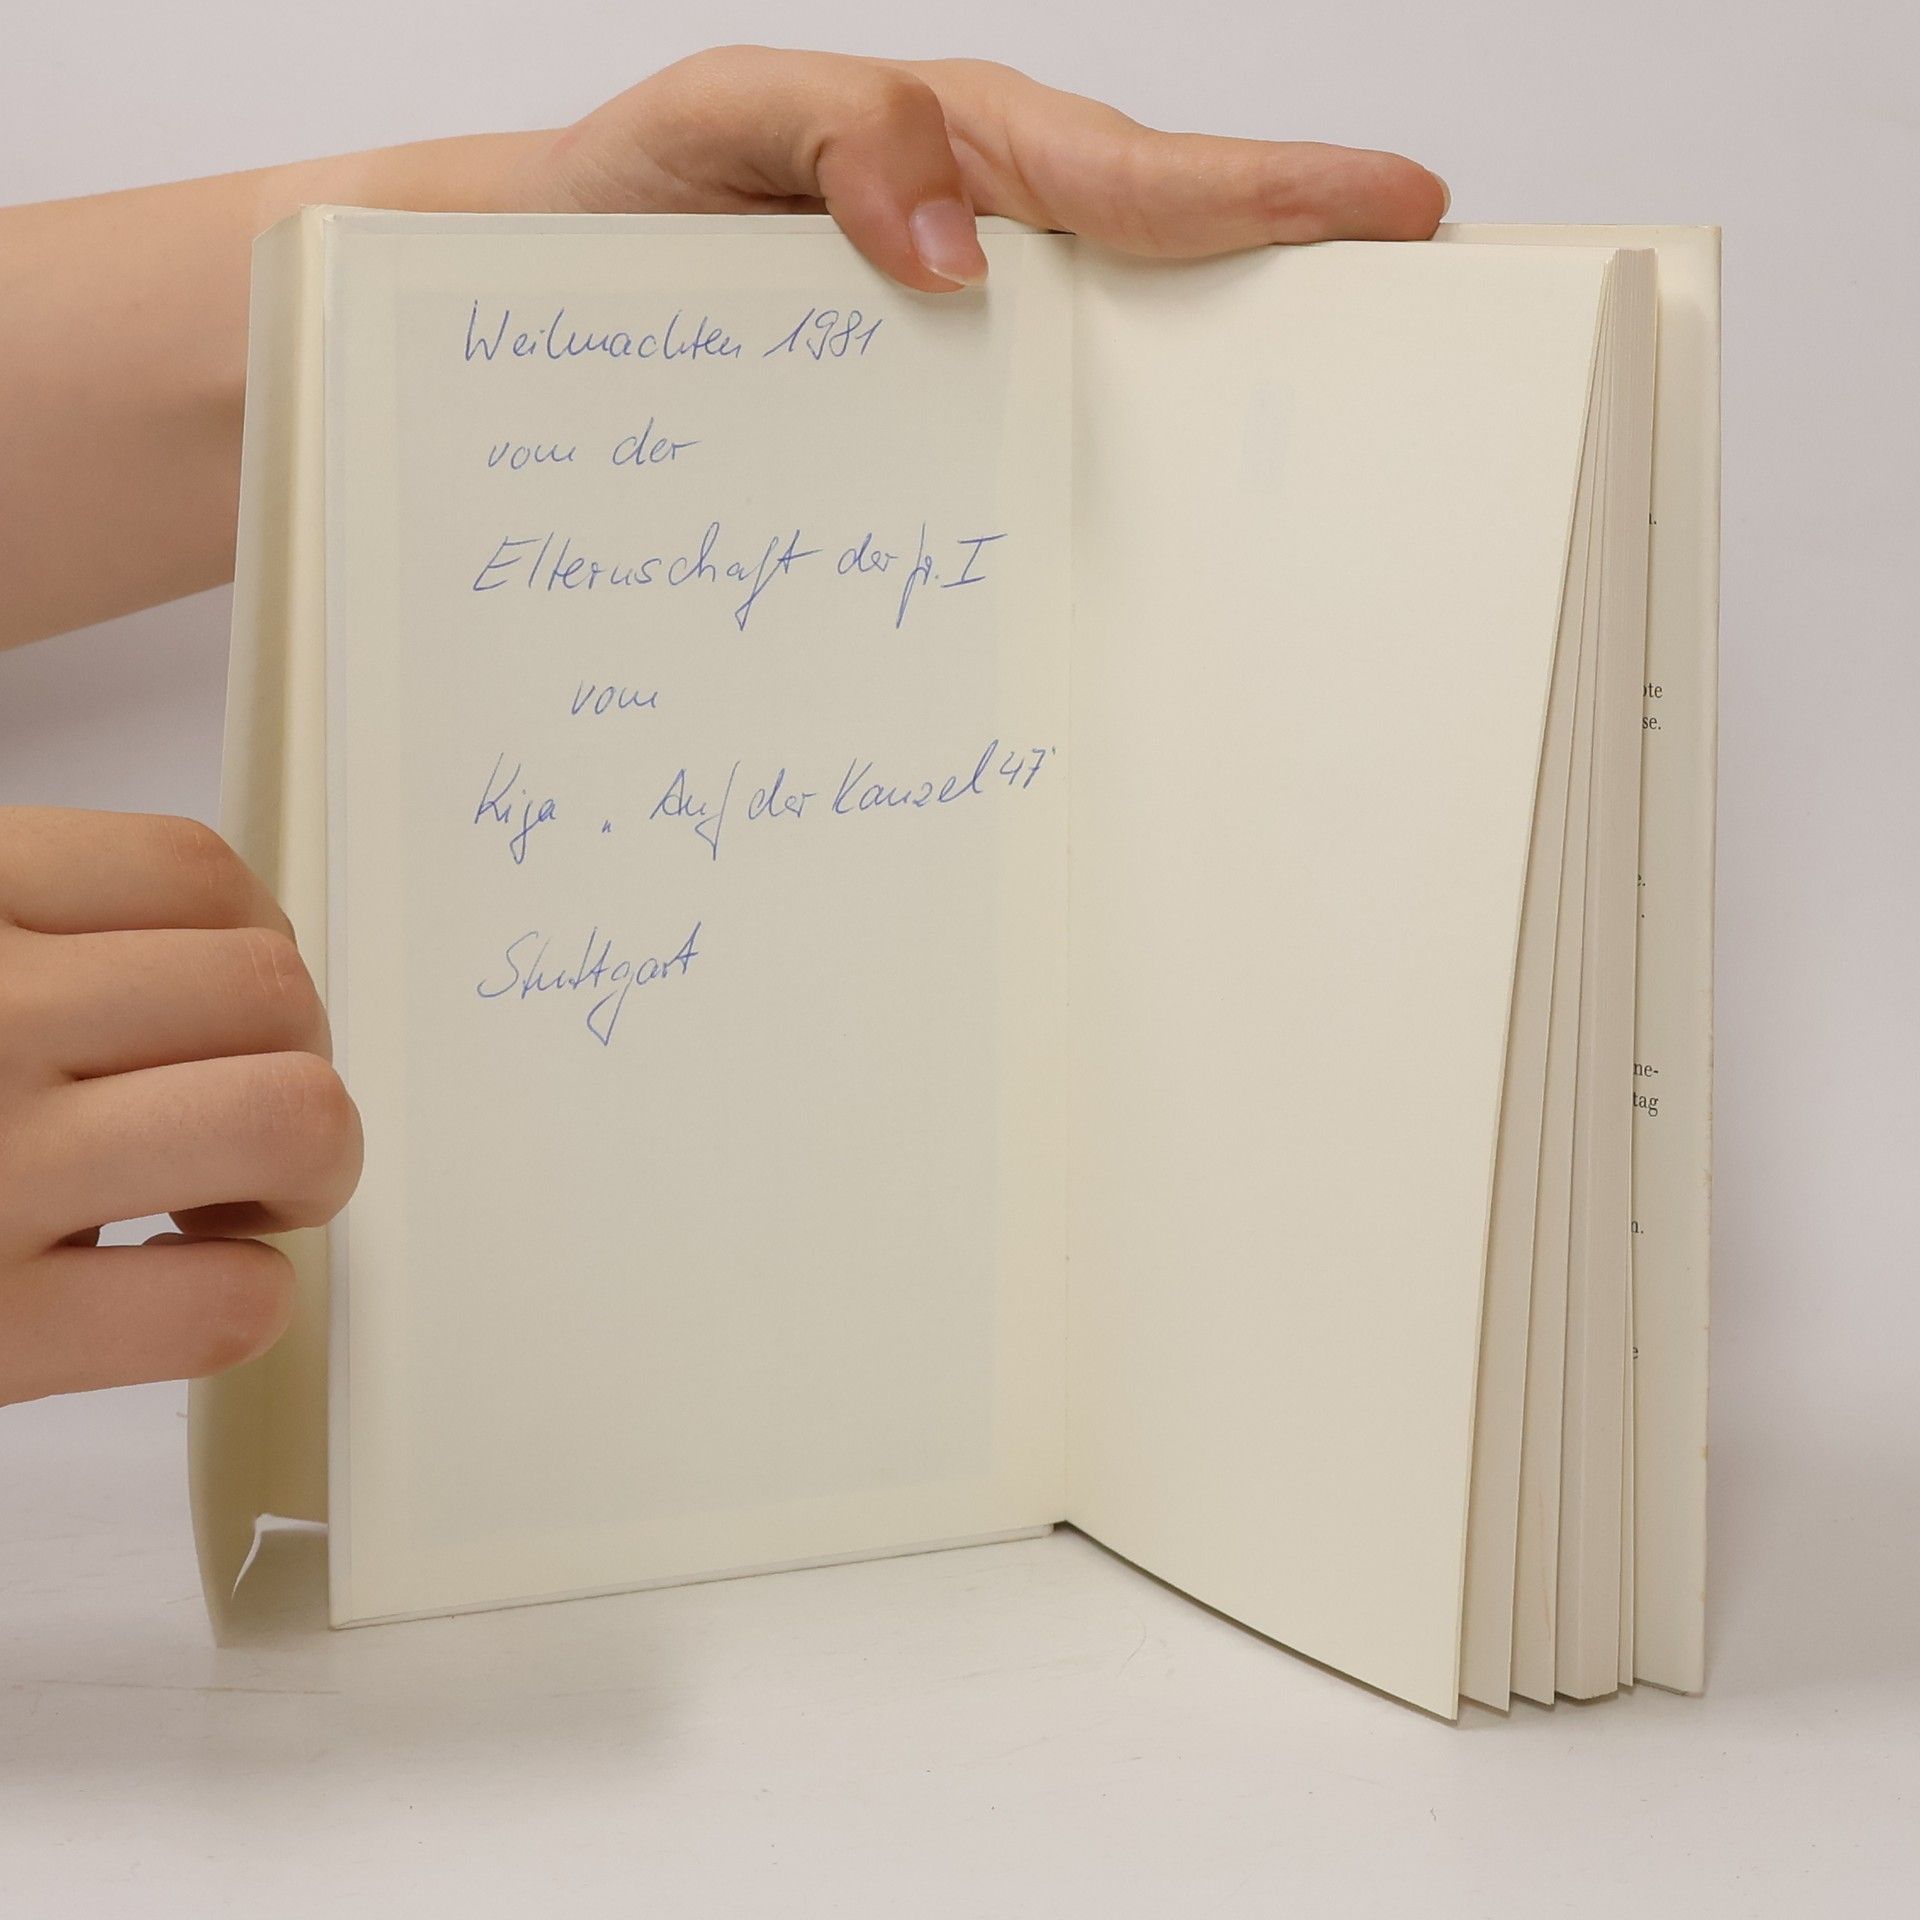 Weihnachten 1981
von der
Elternschaft der gr. I
vom
Kiga „Auf der Kanzel 47"
Stuttgart
ote
se.
e.
ne-
tag
n.
e